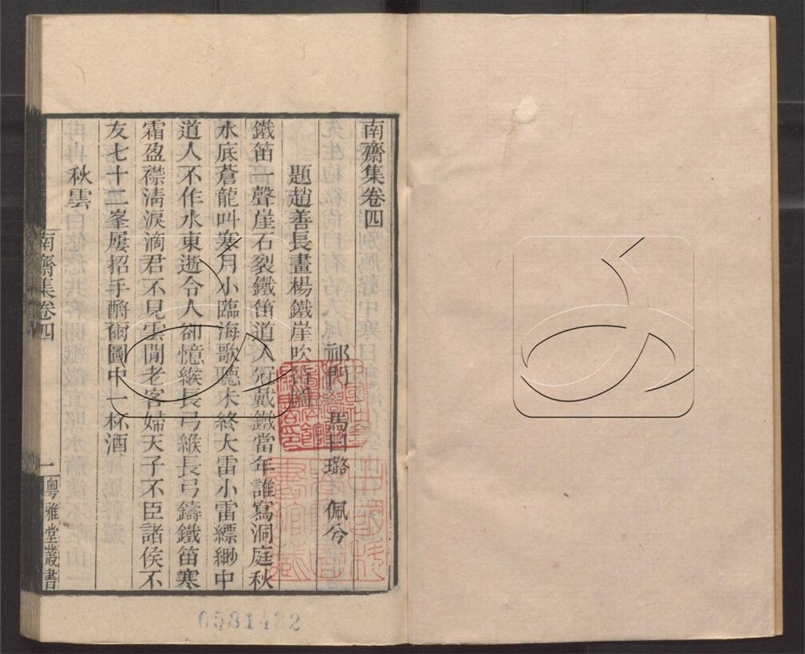 南齋集卷四
祁門 馬曰璐 佩兮
題趙善長畫楊鐵崖吹笛圖
鐵笛一聲崖石裂鐵笛道人冠戴鐵當年誰寫洞庭秋
水底蒼龍叫寒月小臨海歌聽未終大雷小雷縹緲中
道人不作水東逝令人卻憶緱長弓緱長弓鑄鐵笛寒
霜盈襟淸淚滴君不見雲閒老客婦天子不臣諸侯不
友七十二峯屢招手酹爾圖中一杯酒
秋雲
南齋集卷四
一
粵雅堂叢書
0581432